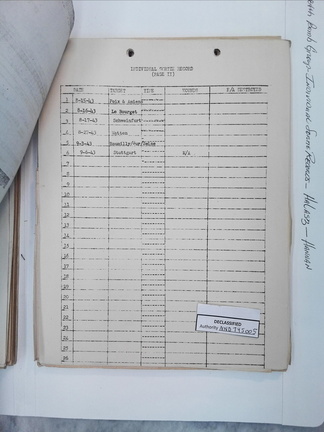 INDIVIDUAL SORTIE RECORD
(PAGE II)
DATE TARGET TIME REMARKS E/A DESTROYED
1 8-15-43 Poix & Amiens
2 8-16-43 Le Bourget
3 8-17-43 Schweinfurt
4 8-27-43
5 9-3-43 Romilly/Sur/Seine
6 9-6-43 Stuttgart
7
8
9
10
11
12
13
14
15
16
17
18
19
20
21
22
23
24
25
26
DECLASSIFIED
Authority NND 745005
Bomb Group - Individual Sortie Records -